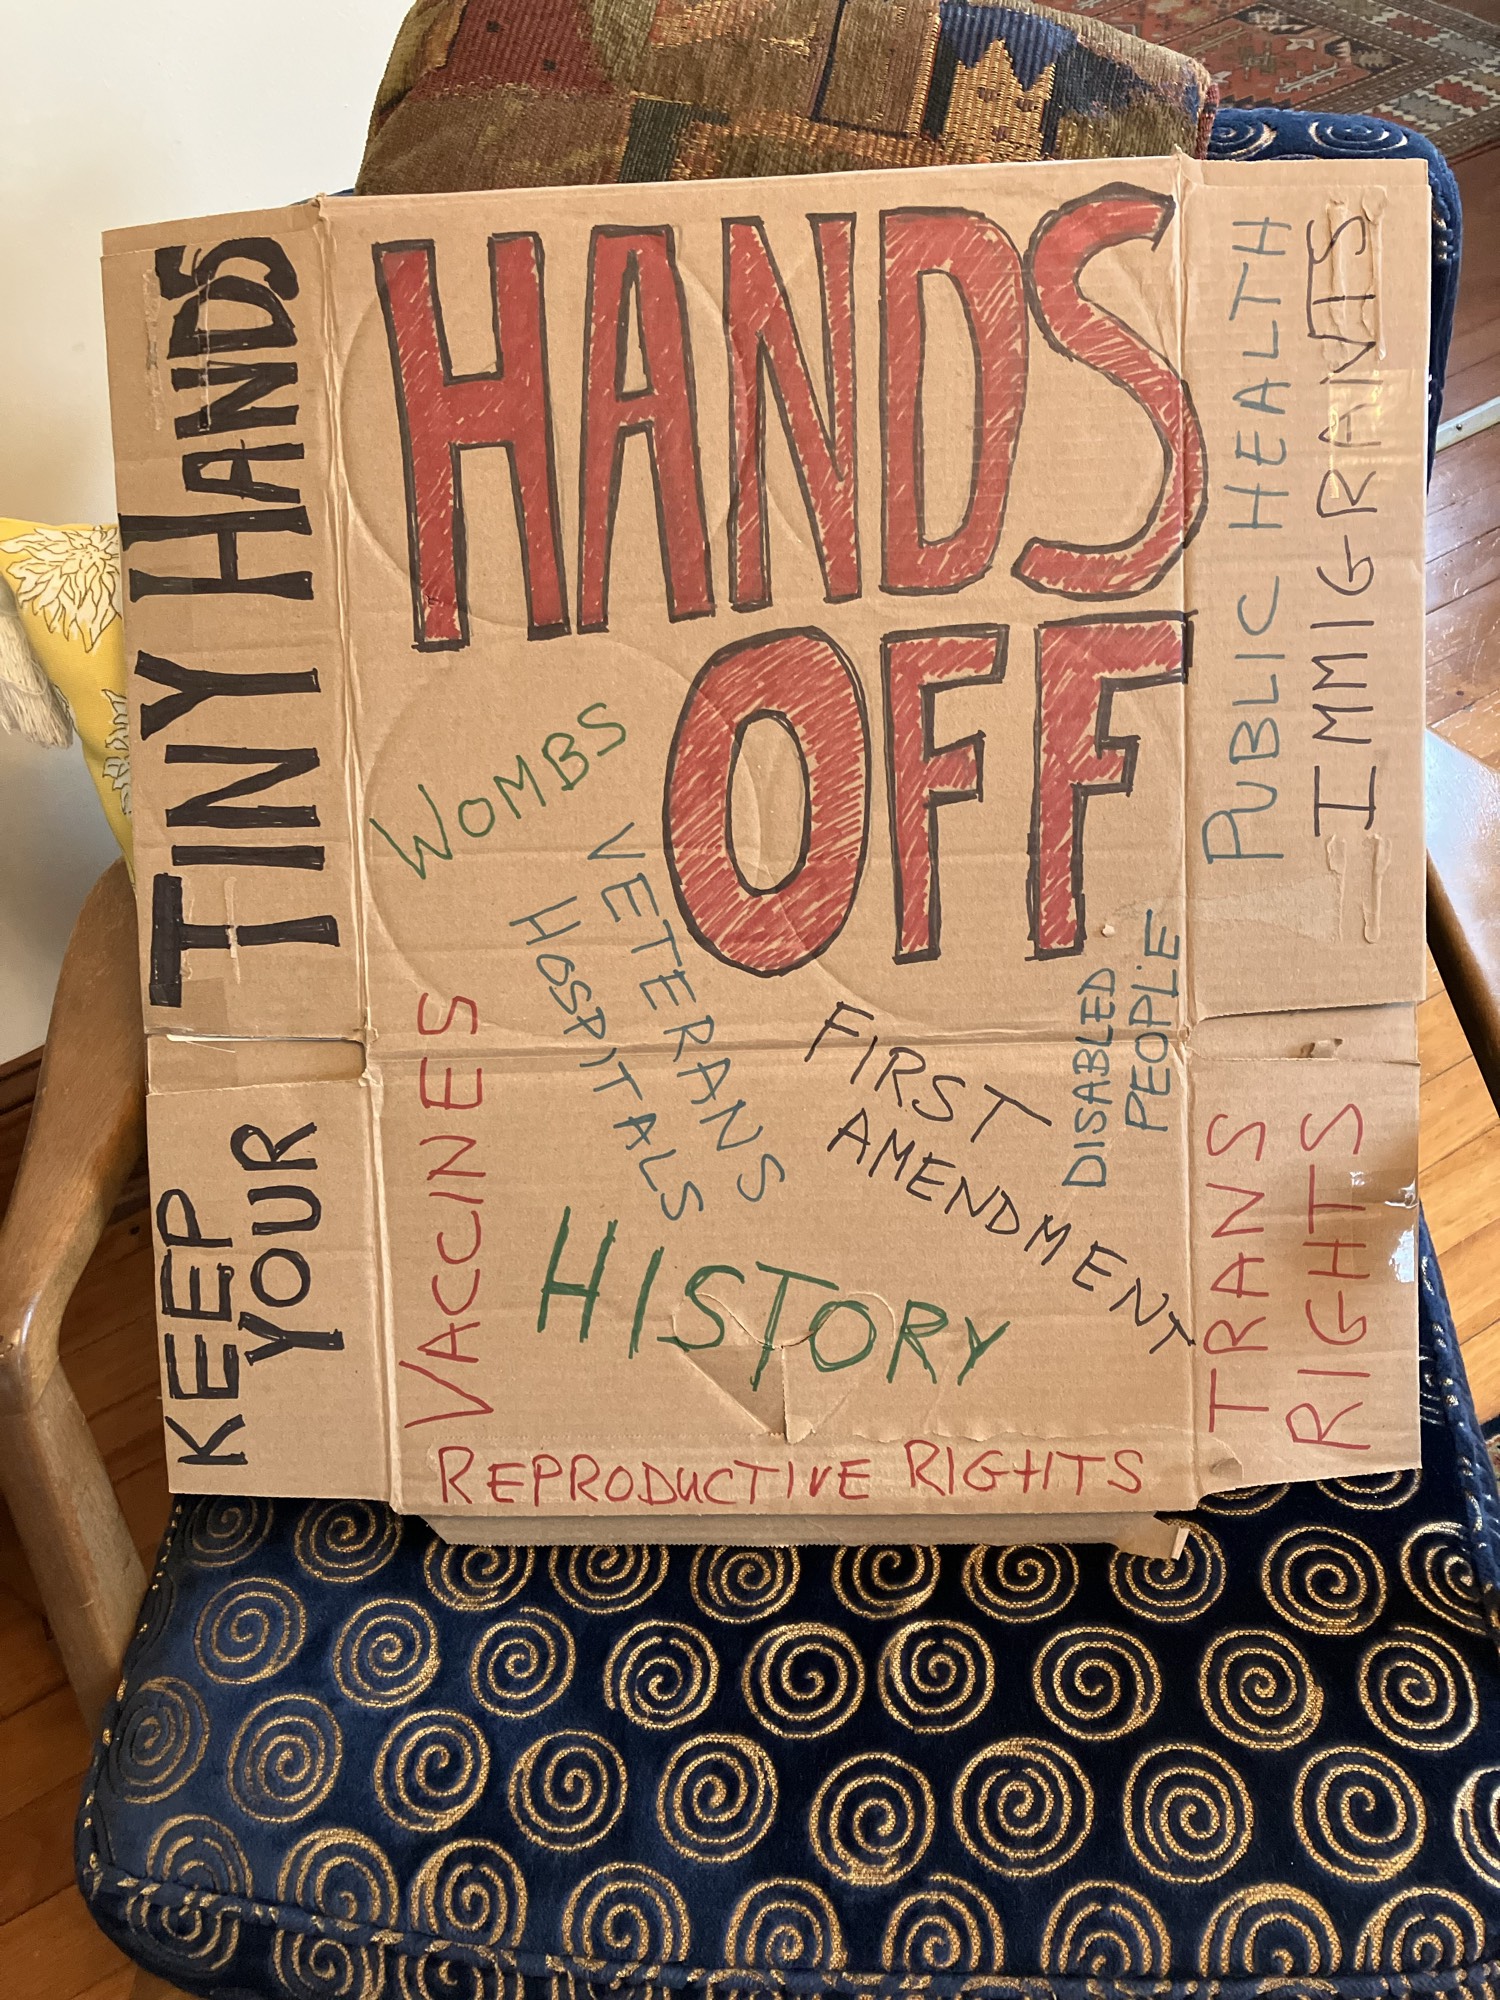 KEEP
YOUR
TINY HANDS
HANDS
OFF
WOMBS
VETERANS
HOSPITALS
VACCINES
FIRST
AMENDMENT
DISABLED
PEOPLE
HISTORY
REPRODUCTIVE RIGHTS
PUBLIC HEALTH
IMMIGRANTS
TRANS
RIGHTS